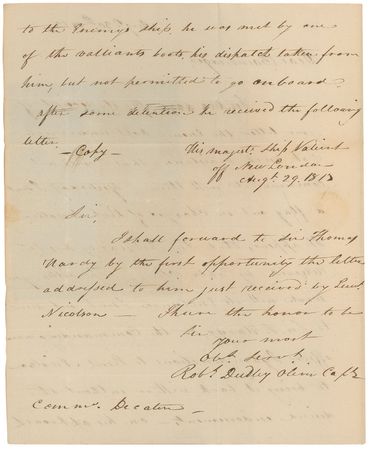 to the Enemys ship, he was met by one
of the valliants boats, his dispatch taken from
him, but not permitted to go on board.
after some detention he received the following
letter.
- Copy -
His majests Ship Valient
off New London
Augt. 29. 1813
Sir,
I shall forward to Sir Thomas
Hardy by the first opportunity the letter
addressed to him just received by Lieut
Nicolson - I have the honor to be
Sir
your most
Obt. Servt.
Robt. Dudley Oliver Capt.
Commr. Decatur -